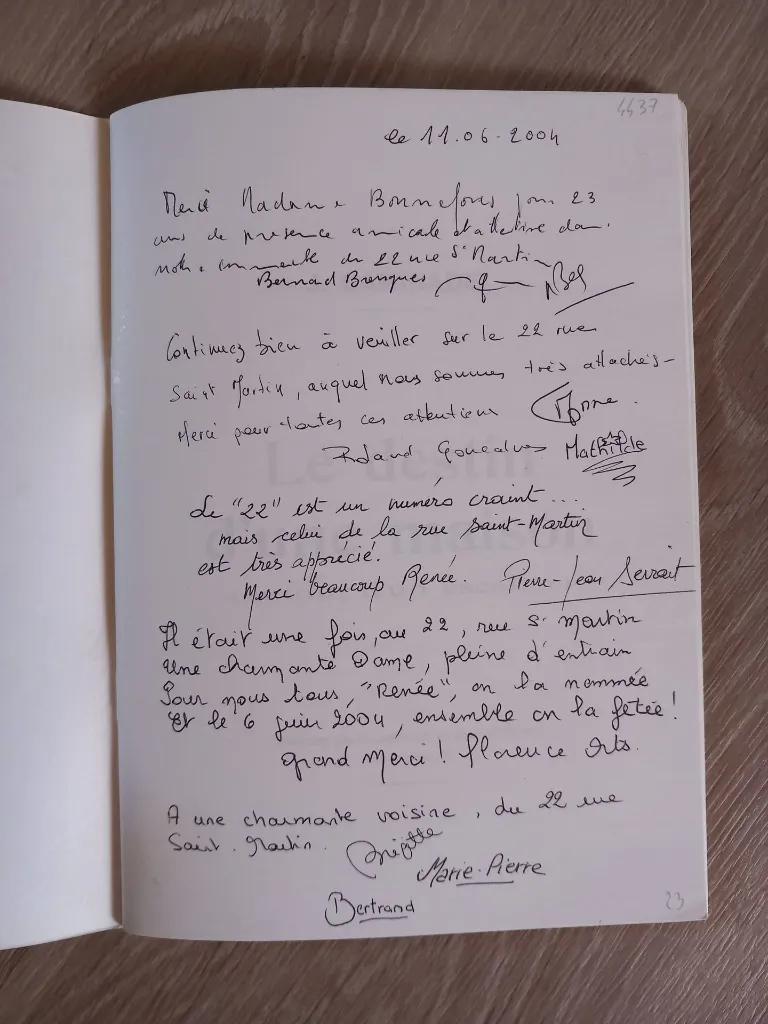 4437
le 11.06.2004
Merci Madame Bonnefous pour 23
ans de présence amicale et attentive dans
notre du 22 rue St Martin
Bernard Bronques
Continuez bien à veiller sur le 22 rue
Saint Martin, auquel nous sommes très attachés -
Merci pour toutes ces attentions Anne.
Roland Goncalves Mathilde
Le "22" est un numéro craint...
mais celui de la rue Saint-Martin
est très apprécié.
Merci beaucoup Renée. Pierre-Jean
Il était une fois, au 22, rue St Martin
Une charmante Dame, pleine d'entrain
Pour nous tous, "Renée", on la nommée
Et le 6 juin 2004, ensemble on la fêtée !
Grand Merci ! Florence Orts.
A une charmante voisine, du 22 rue
Saint. Martin. Brigitte
Marie-Pierre
Bertrand
23
Le destin
maison